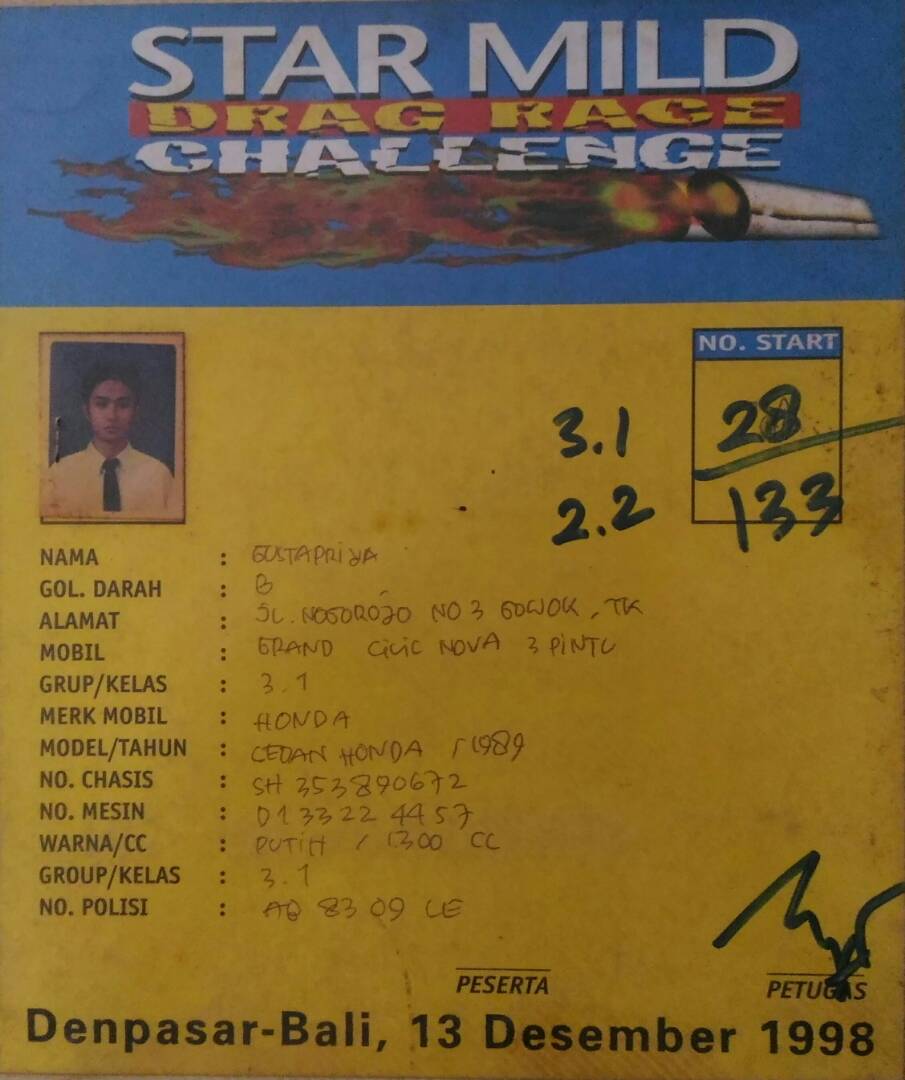 STAR MILD
DRAG RACE
CHALLENGE
NO. START
3.1
28
2.2
133
NAMA : GUSTAPRIYA
GOL. DARAH : B
ALAMAT : JL. NOGOROJO NO 3 GOWOK, TK
MOBIL : GRAND CIVIC NOVA 3 PINTU
GRUP/KELAS : 3.1
MERK MOBIL : HONDA
MODEL/TAHUN : CEDAN HONDA / 1989
NO. CHASIS : SH 353890672
NO. MESIN : D1 33 22 44 57
WARNA/CC : PUTIH / 1300 CC
GROUP/KELAS : 3.1
NO. POLISI : AB 83 09 CE
PESERTA
PETUGAS
Denpasar-Bali, 13 Desember 1998